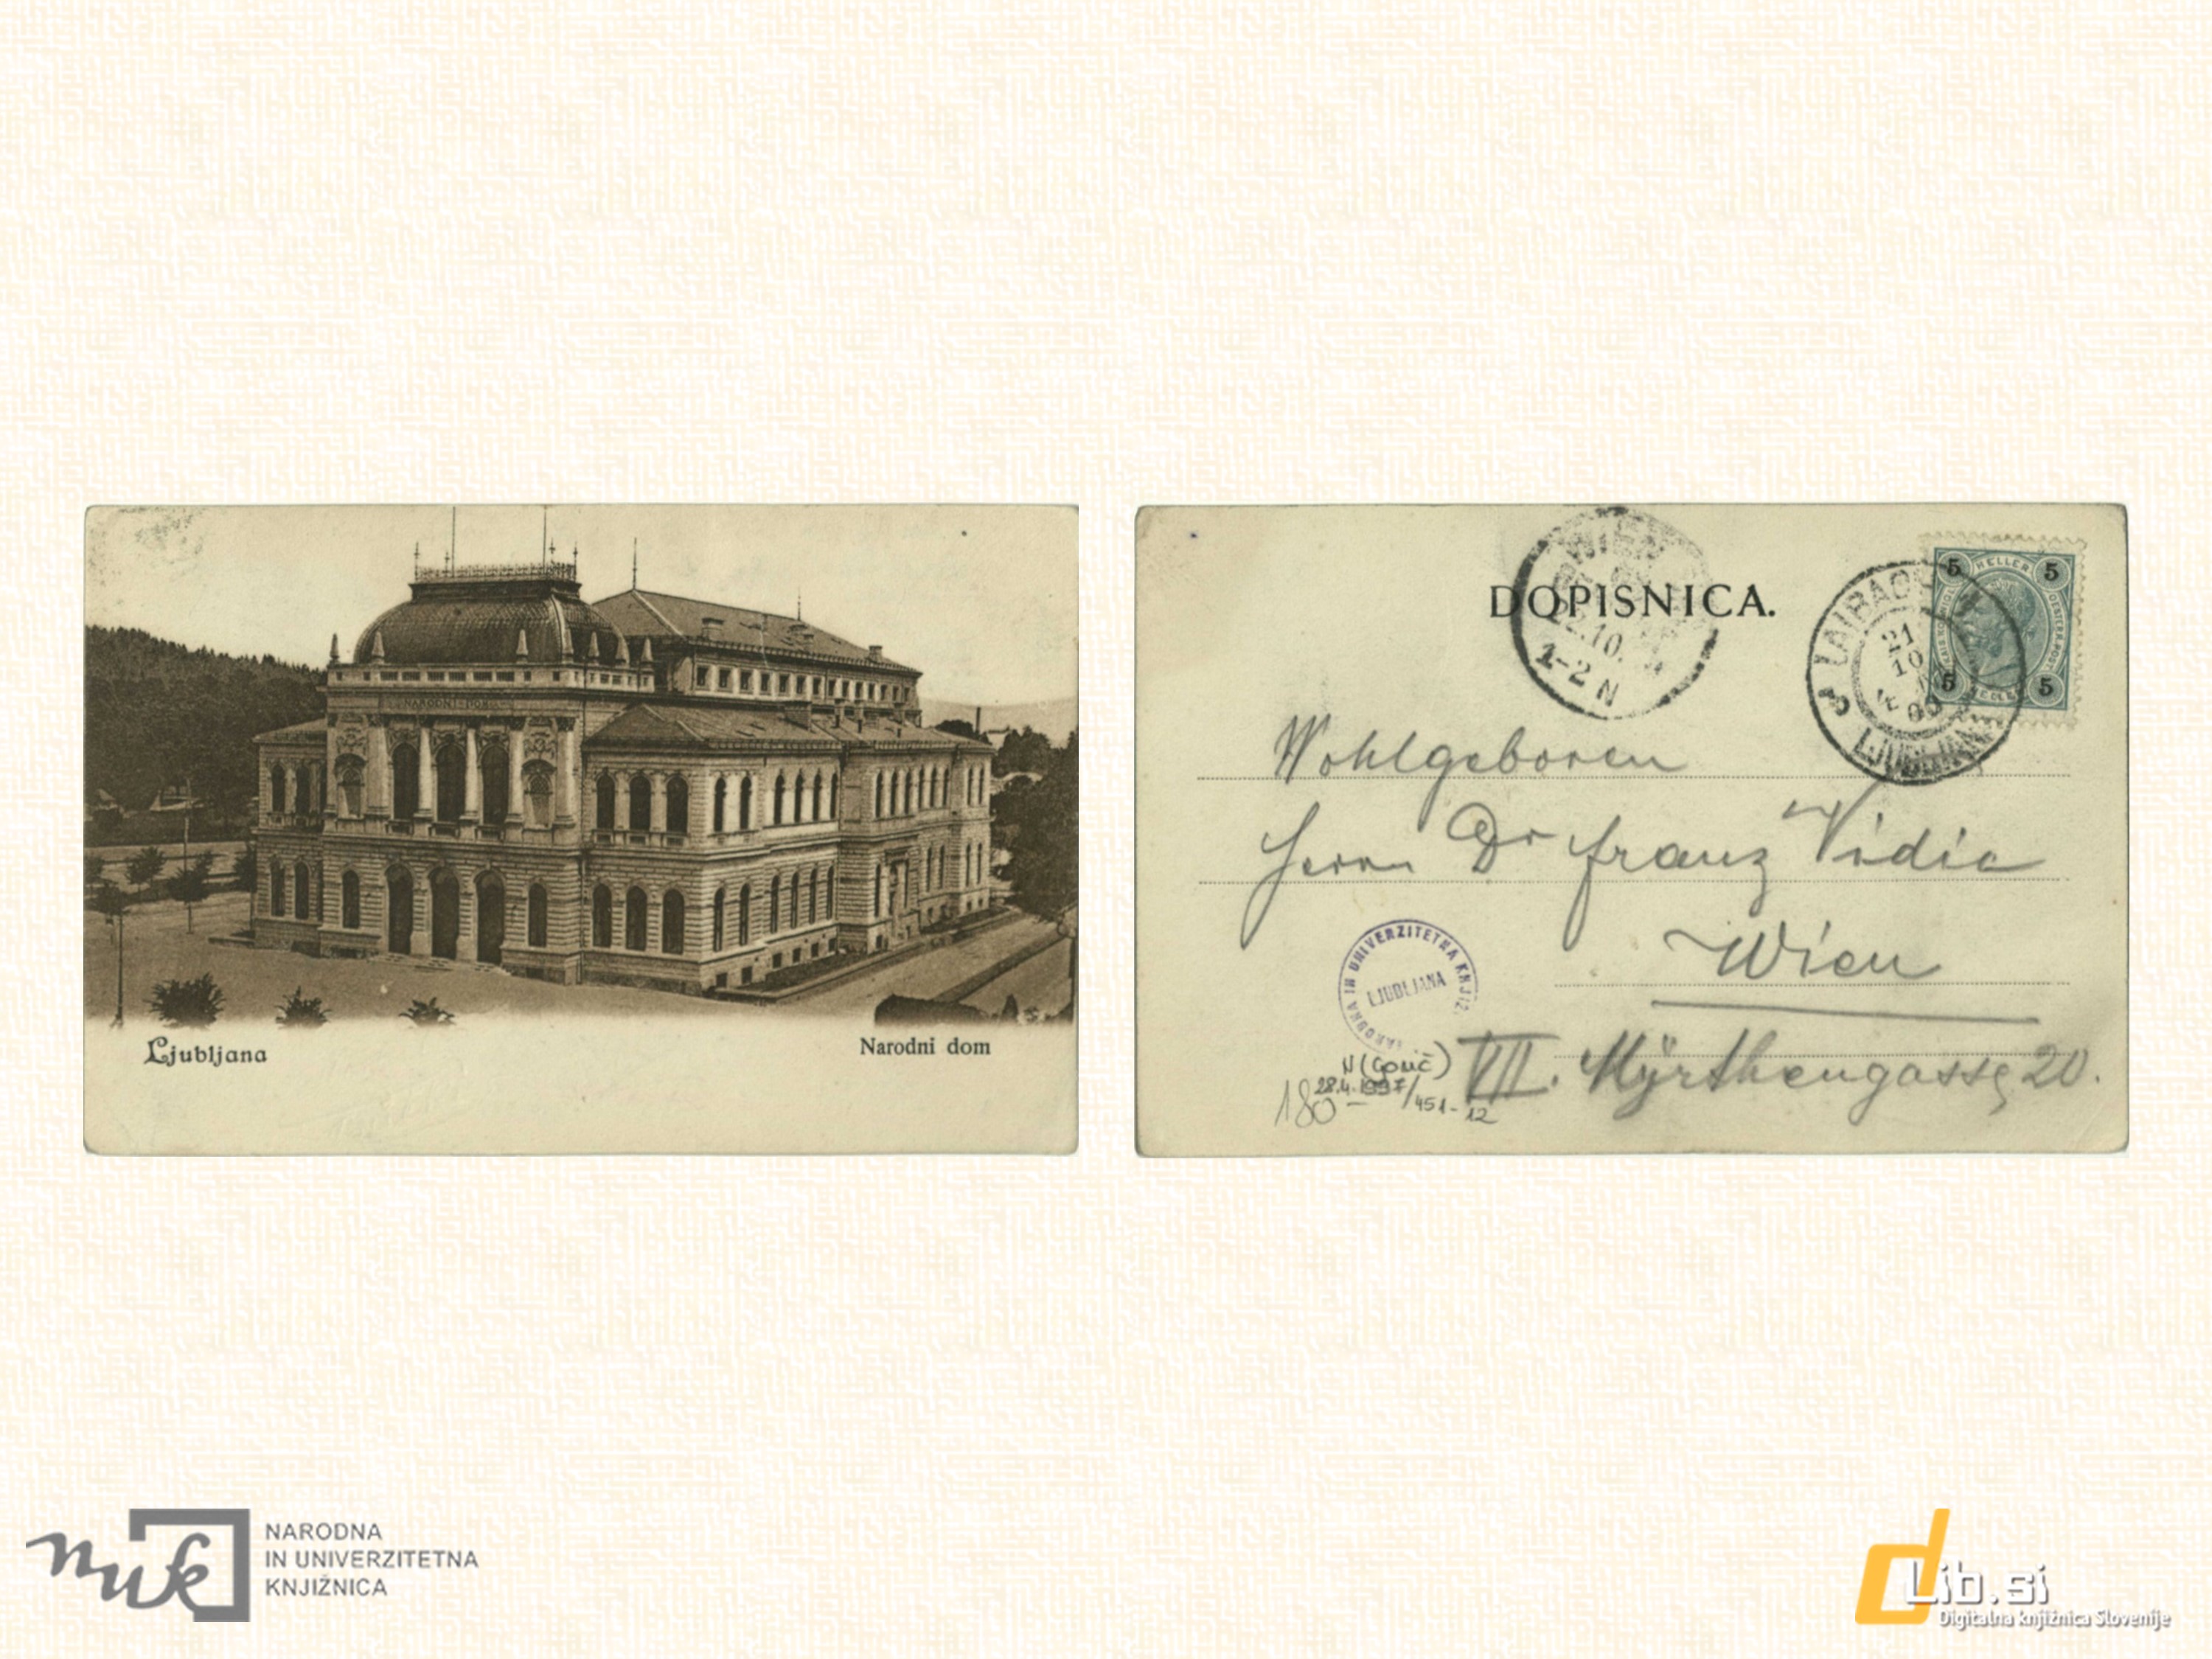 NARODNI DOM
Ljubljana
Narodni dom
DOPISNICA.
WIEN
.10.
1-2 N
LAIBACH
21
10
LJUBLJANA
5 HELLER 5
5 5
Wohlgeboren
Herrn Dr Franz Vidic
Wien
VII. Myrthengasse 20.
NARODNA IN UNIVERZITETNA KNJIŽ.
LJUBLJANA
28.4.1997/451-12
180 -
nuk
NARODNA
IN UNIVERZITETNA
KNJIŽNICA
dLib.si
Digitalna knjižnica Slovenije